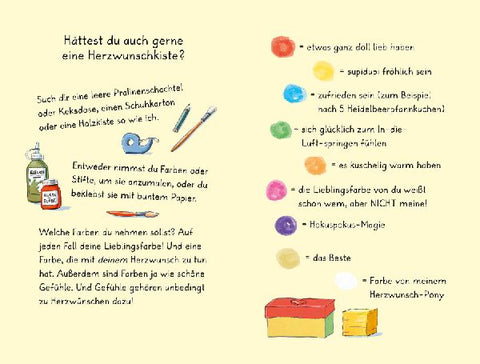 Hättest du auch gerne
eine Herzwunschkiste?
Such dir eine leere Pralinenschachtel
oder Keksdose, einen Schuhkarton
oder eine Holzkiste so wie ich.
Entweder nimmst du Farben oder
Stifte, um sie anzumalen, oder du
beklebst sie mit buntem Papier.
Welche Farben du nehmen sollst? Auf
jeden Fall deine Lieblingsfarbe! Und eine
Farbe, die mit deinem Herzwunsch zu tun
hat. Außerdem sind Farben ja wie schöne
Gefühle. Und Gefühle gehören unbedingt
zu Herzwünschen dazu!
= etwas ganz doll lieb haben
= supidupi fröhlich sein
= zufrieden sein (zum Beispiel
nach 5 Heidelbeerpfannkuchen)
= sich glücklich zum In-die-
Luft-springen fühlen
= es kuschelig warm haben
= die Lieblingsfarbe von du weißt
schon wem, aber NICHT meine!
= Hokuspokus-Magie
= das Beste
= Farbe von meinem
Herzwunsch-Pony